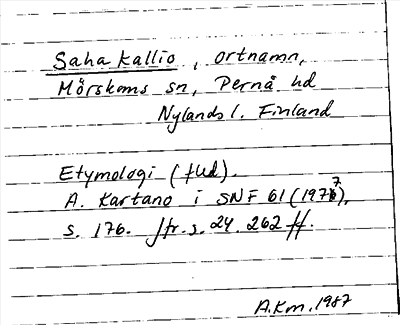 Saha kallio, ortnamn,
Mörskoms sn, Pernå hd
Nylands l. Finland
Etymologi (
A. Kartano i SNF 61 (1977),
s. 176. Jfr. s. 24. 262 ff.
A.Km. 1987